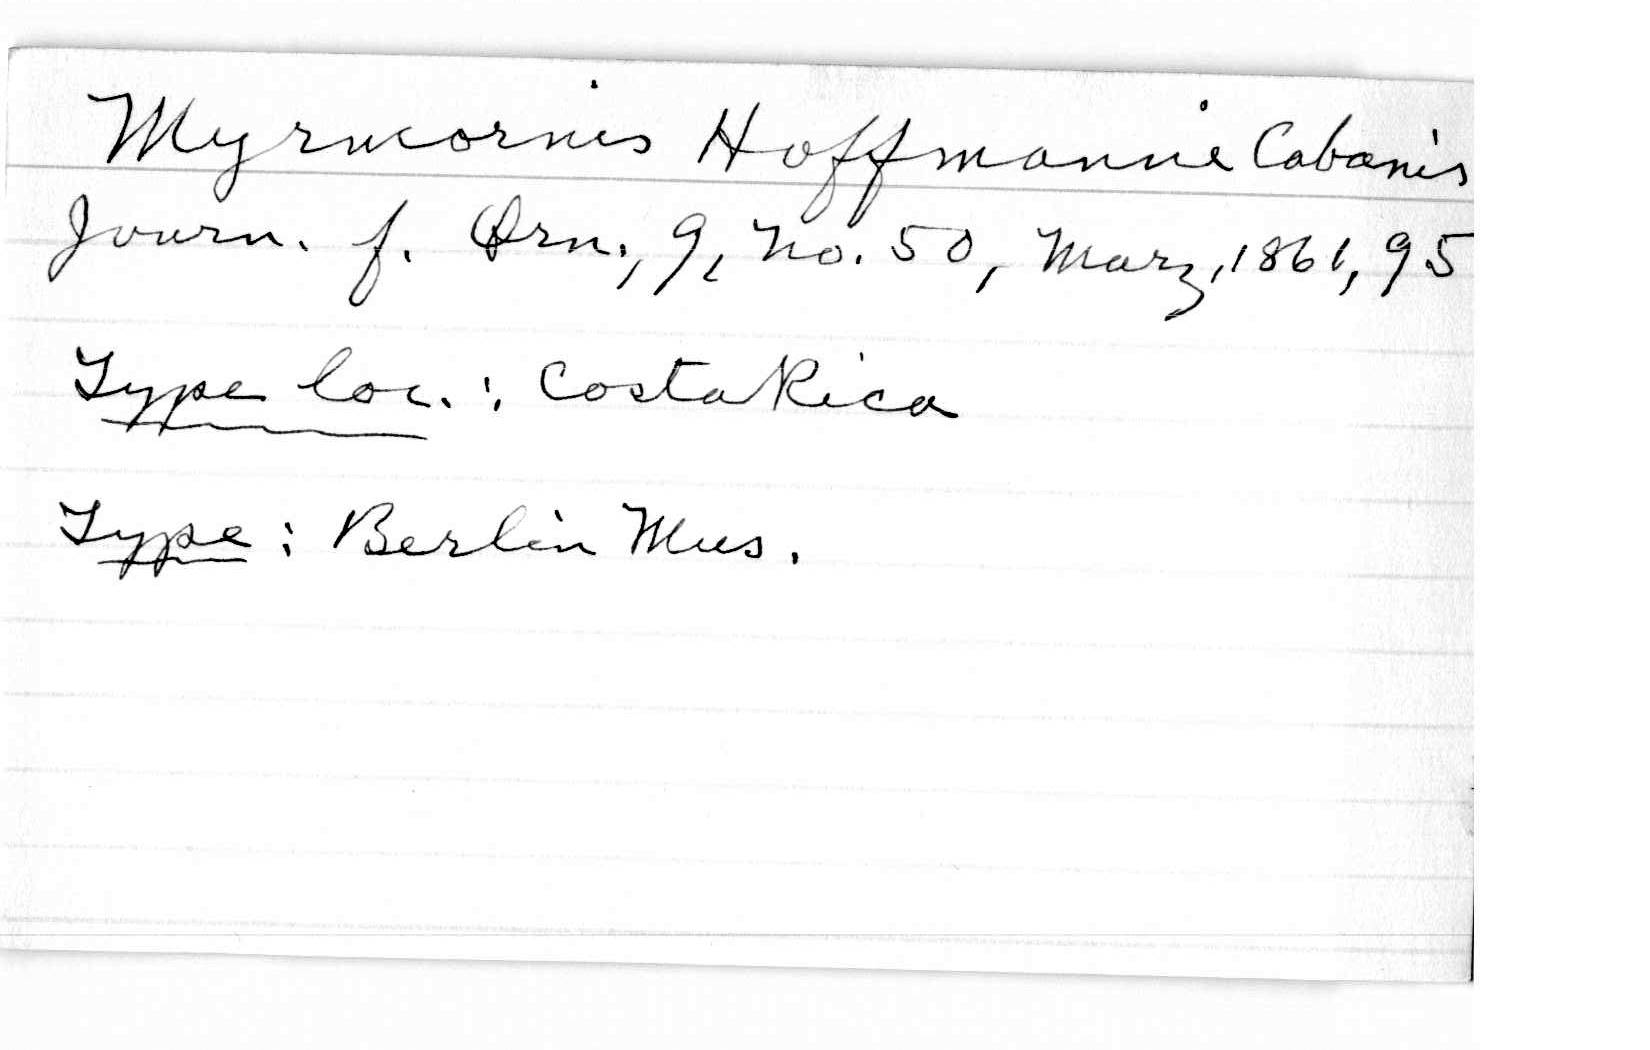 Myrmornis Hoffmanni Cabanis
Journ. f. Orn., 9, No. 50, Marz, 1861, 95
Type loc.: Costa Rica
Type: Berlin Mus.